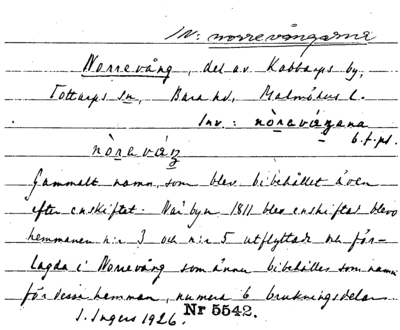 IN: norrevångarna
Norrevång, del av Kabbarps by,
Tottarps sn, Bara hd, Malmöhus l.
Inv.: nòreváŋana
b.f.pl.
nòreváŋ
Gammalt namn, som blev bibehållet även
efter enskiftet. När byn 1811 blev enskiftad blevo
hemmanen n:r 3 och n:r 5 utflyttade och för-
lagda i Norrevång som ännu bibehålles som namn
för dessa hemman, numera 6 brukningsdelar
I. Ingers 1926. Nr 5542.